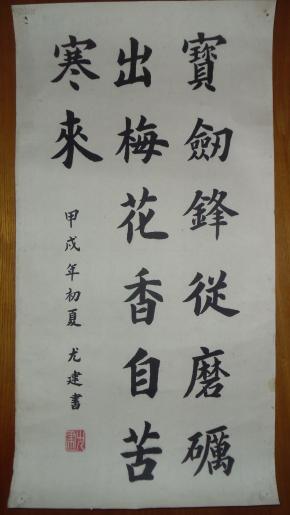 寶劒鋒從磨礪
出梅花香自苦
寒來
甲戌年初夏 尤建書